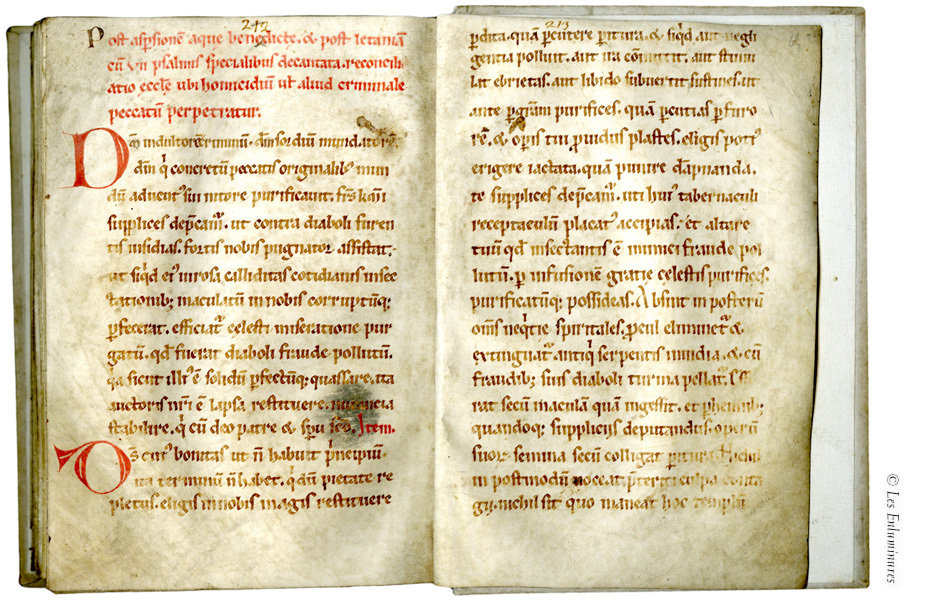 242
Post aspsionē aque benedicte. & post letaniā
cū VII psalmis specialibus decantata. reconcili
atio eccłe ubi homicidiū uł aliud criminale
peccatū perpetratur.
Dm̄ indultorē criminū. dm̄ sordiū mundatorē.
dm̄ q̇ concretū peccatis originalib; mun
dū aduent' sui nitore purificauit. frs̄ km̄i
supplices dep̄cam̄. ut contra diaboli furen
tis insidias. fortis nobis pugnator assistat.
ut siq̇d ei' uirosa calliditas cotidianis insec
tationib; maculatū in nobis corruptūq;
pfecerat. efficiat̄ celesti miseratione pur
gatū. qd̄ fuerat diaboli fraude pollutū.
q̄a sicut illi' ē solidū pfectūq; quassare. ita
auctoris nr̄i ē lapsa restituere.
stabilire. q̇ cū deo patre & spū sc̄o. Item.
Ds cui' bonitas ut n̄ habuit p̄ncipiū.
ita terminū n̄ habet. q̇ dm̄ pietate re
pletus. eligis in nobis magis restituere
213
pdita. quā pcutere pitura. & siq̇d aut negli
gentia polluit. aut ira cōmittit. aut stimu
lat ebrietas. aut libido subuertit. sustines. ut
ante p gr̄am purifices. quā pcutias p furo
rē. & opis tui p̄uidus plastes. eligis poti'
erigere iactata. quā punire dāpnanda.
te supplices dep̄cam̄. uti hui' tabernaculi
receptaculū placat' accipias. et altare
tuū qd̄ insectantis ē inimici fraude pol
lutū. p infusionē gratie celestis purifices.
purificatūq; possideas. Absint in posterū
om̄s neq̇tie spiritales. pcul eliminet̄ &
extinguat̄ antiq̇ serpentis inuidia. & cū
fraudib; suis diaboli turma pellat̄.
rat secū maculā quā ingessit. et phennib;
quandoq; suppliciis deputandus. opērū
suor̄ semina secū colligat pitura. Nichil
in postmodū noceat p̄teriti culpa conta
gii. nichil sit quo maneat hoc templū
© Les Enluminures